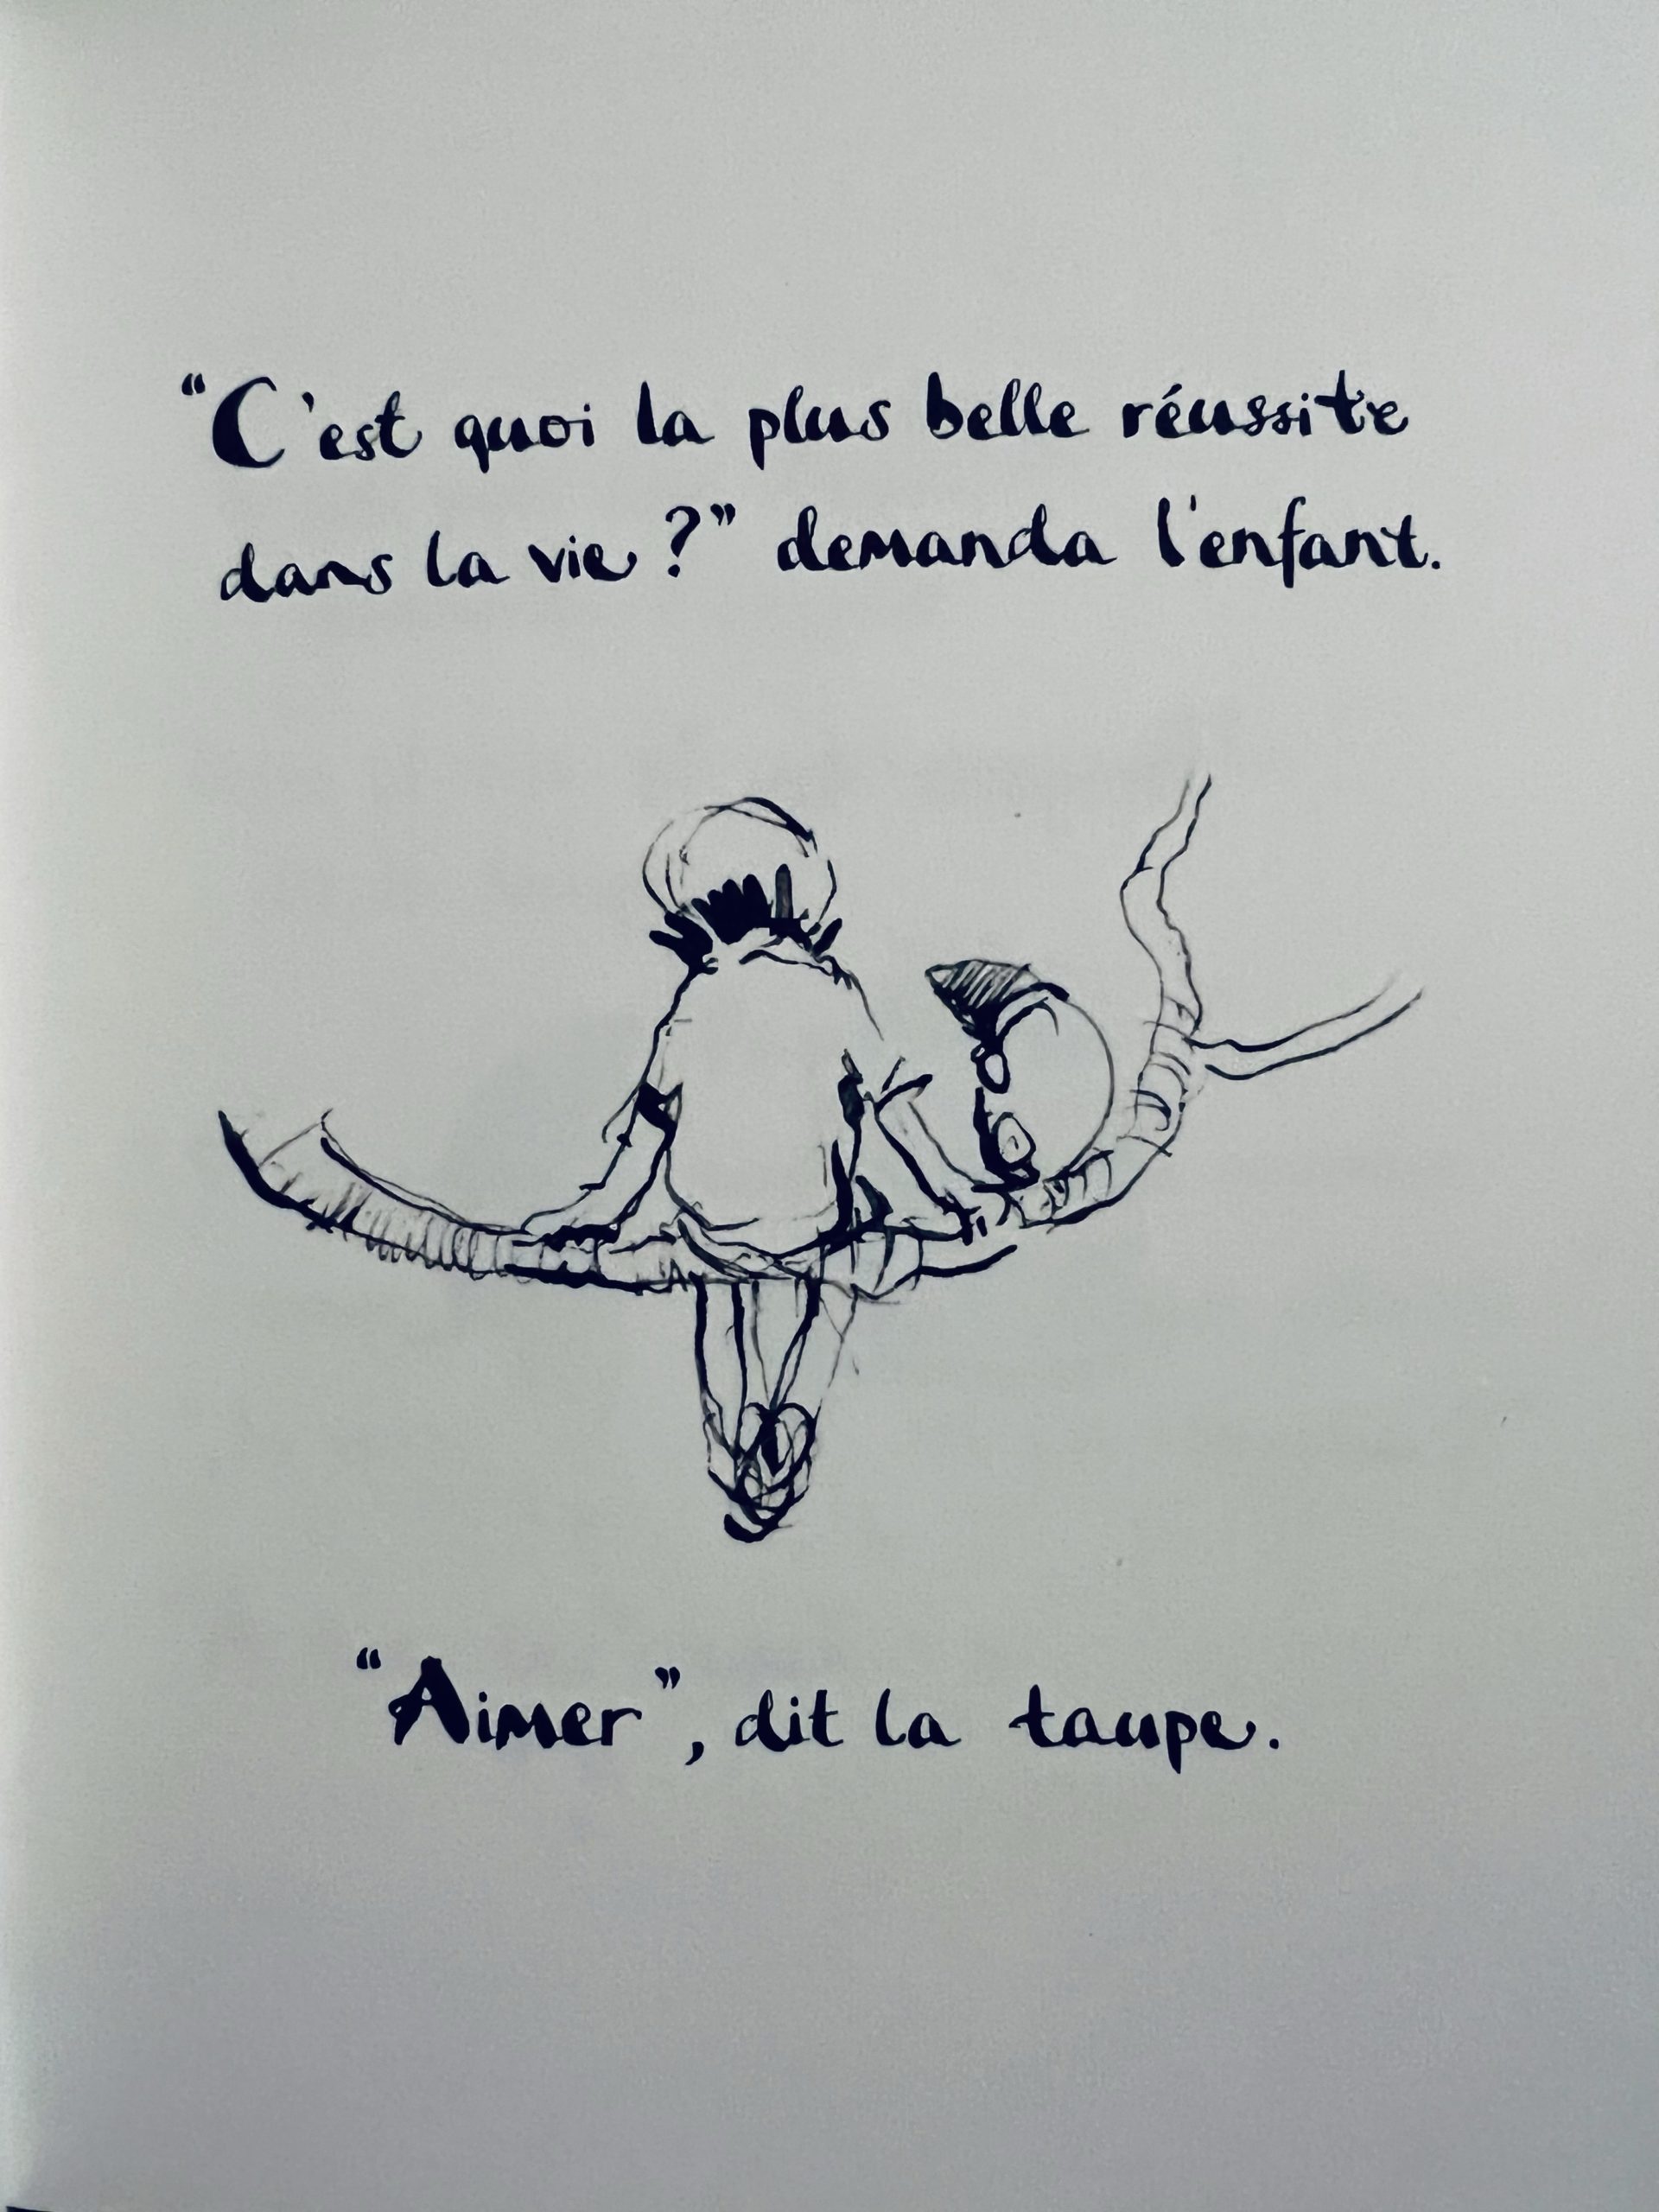 “C'est quoi la plus belle réussite
dans la vie ?” demanda l'enfant.
“Aimer”, dit la taupe.